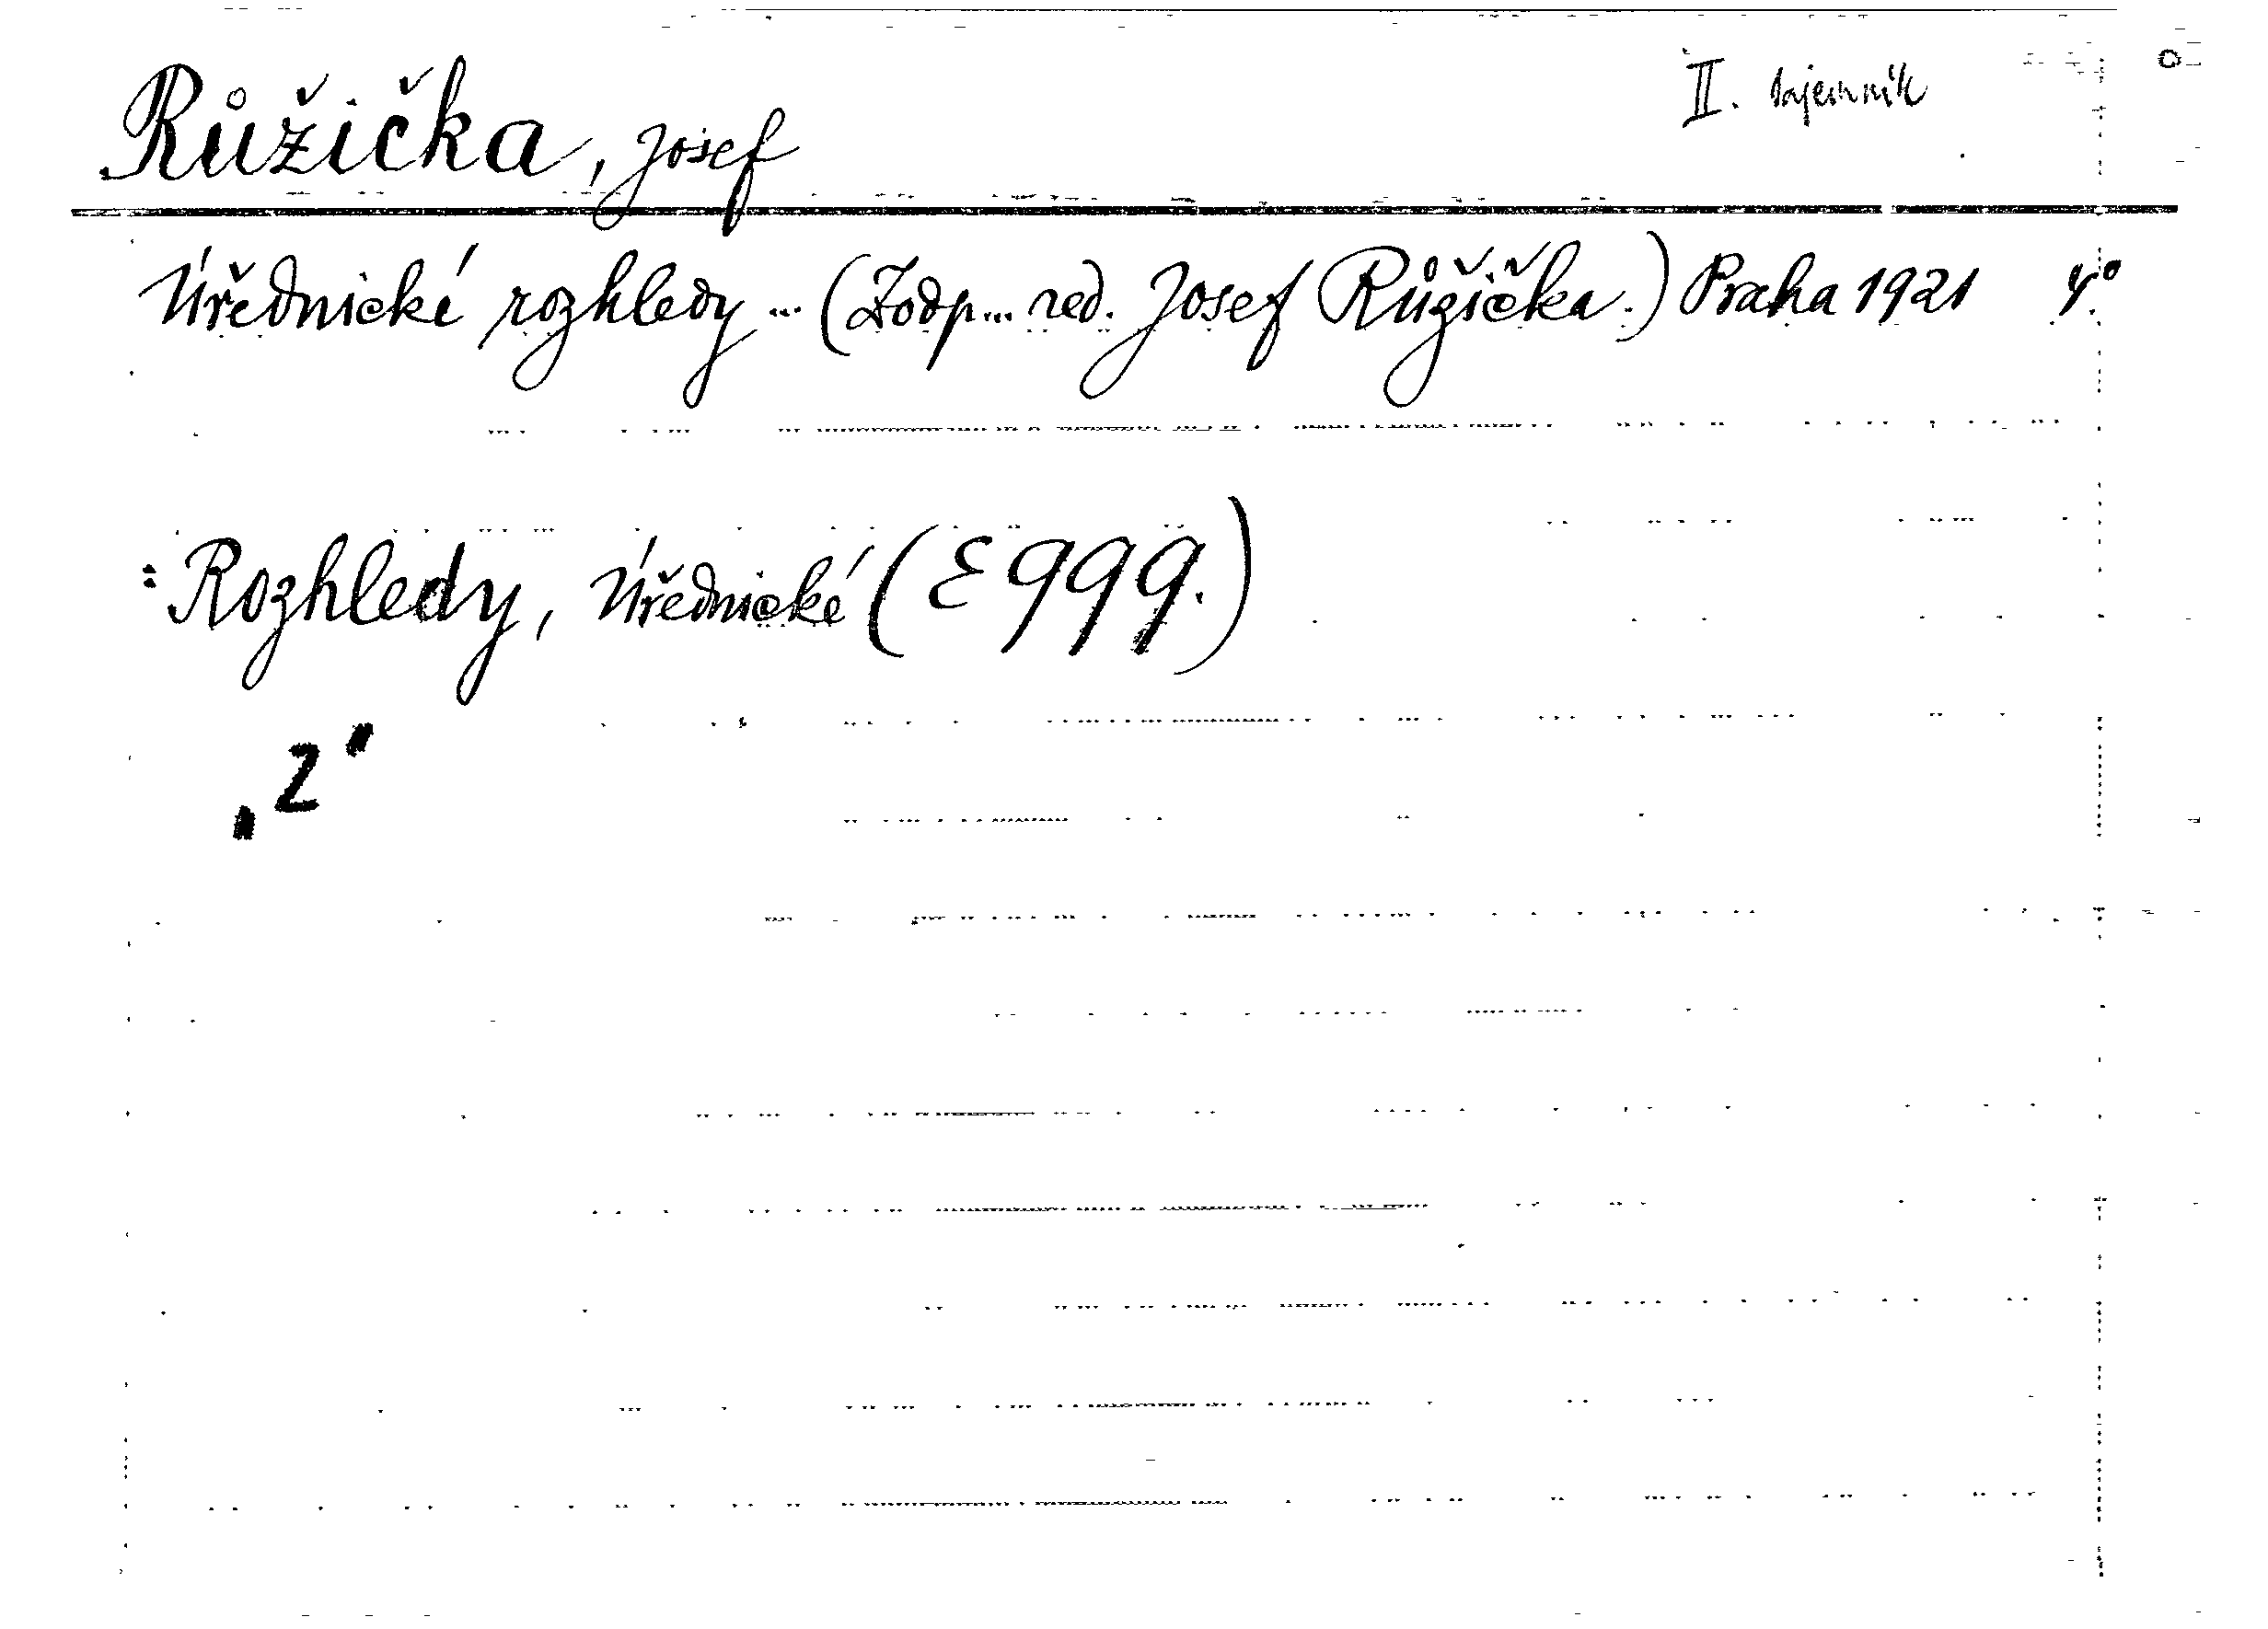 Růžička, Josef II. tajemník
Úřednické rozhledy... (Zodp... red. Josef Růžička.) Praha 1921 4.º
: Rozhledy, Úřednické (E 999.)
„Z"